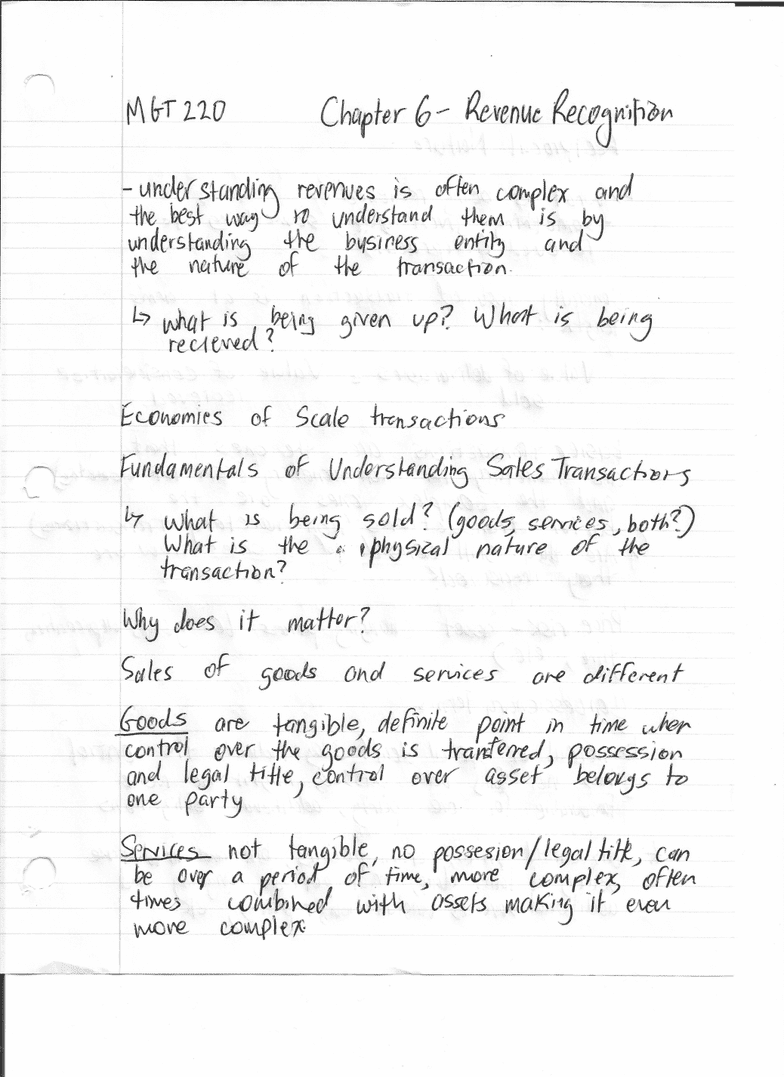 MGT 220 Chapter 6 - Revenue Recognition
- understanding revenues is often complex and
the best way to understand them is by
understanding the business entity and
the nature of the transaction.
↳ what is being given up? What is being
recieved?
Economies of Scale transactions
Fundamentals of Understanding Sales Transactions
↳ What is being sold? (goods, services, both?)
What is the physical nature of the
transaction?
Why does it matter?
Sales of goods and services are different
Goods are tangible, definite point in time when
control over the goods is tranferred, possession
and legal title, control over asset belongs to
one party
Services not tangible, no possesion/legal title, can
be over a period of time, more complex, often
times combined with assets making it even
more complex.